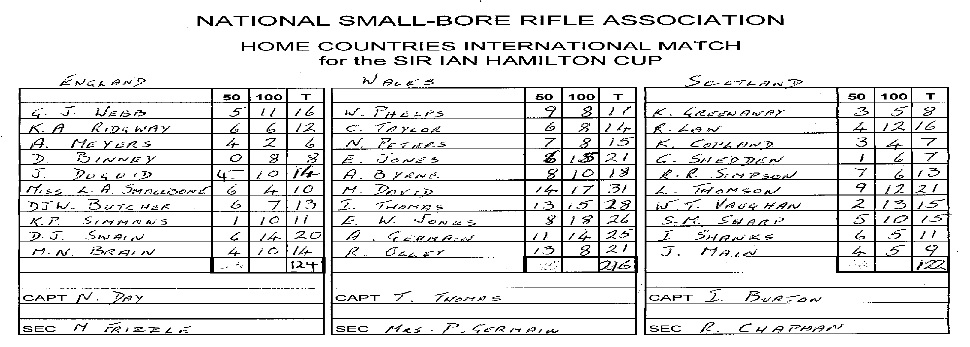 NATIONAL SMALL-BORE RIFLE ASSOCIATION
HOME COUNTRIES INTERNATIONAL MATCH
for the SIR IAN HAMILTON CUP
ENGLAND
50 100 T
G. J. WEBB 5 11 16
K.A RIDGWAY 6 6 12
A. MEYERS 4 2 6
D. BINNEY 0 8 8
J. DUGUID 4 10 14
MISS. L.A. SMALLBONE 6 4 10
DJW. BUTCHER 6 7 13
K.P. SIMMONS 1 10 11
D.J. SWAIN 6 14 20
M.N. BRAIN 4 10 14
124
CAPT N. DAY
SEC M FRIZZLE
WALES
50 100 T
W. PHELPS 9 8 17
C. TAYLOR 6 8 14
N. PETERS 7 8 15
E. JONES 6 15 21
A. BYRNE 8 10 18
M. DAVID 14 17 31
I. THOMAS 13 15 28
E. W. JONES 8 18 26
A. GERMAIN 11 14 25
R. OLLEY 13 8 21
216
CAPT T. THOMAS
SEC MRS. P. GERMAIN
SCOTLAND
50 100 T
K. GREENAWAY 3 5 8
R. LAW 4 12 16
K. COPLAND 3 4 7
C. SHEDDEN 1 6 7
R.R. SIMPSON 7 6 13
L. THOMSON 9 12 21
W.T. VAUGHAN 2 13 15
S.M. SHARP 5 10 15
I. SHANKS 6 5 11
J. MAIN 4 5 9
122
CAPT I. BURTON
SEC R. CHAPMAN